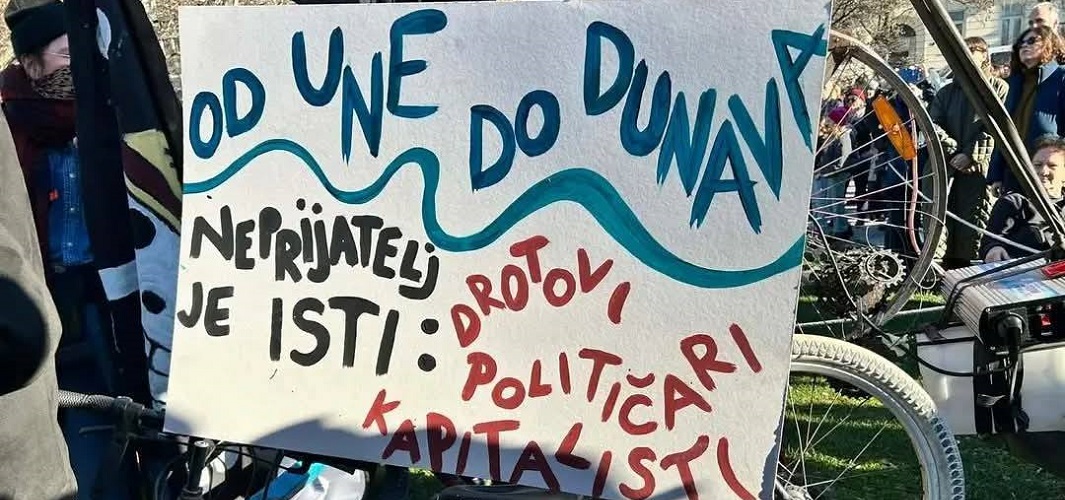 OD UNE DO DUNAVA
NEPRIJATELJ
JE ISTI:
DROTOVI
POLITIČARI
KAPITALISTI